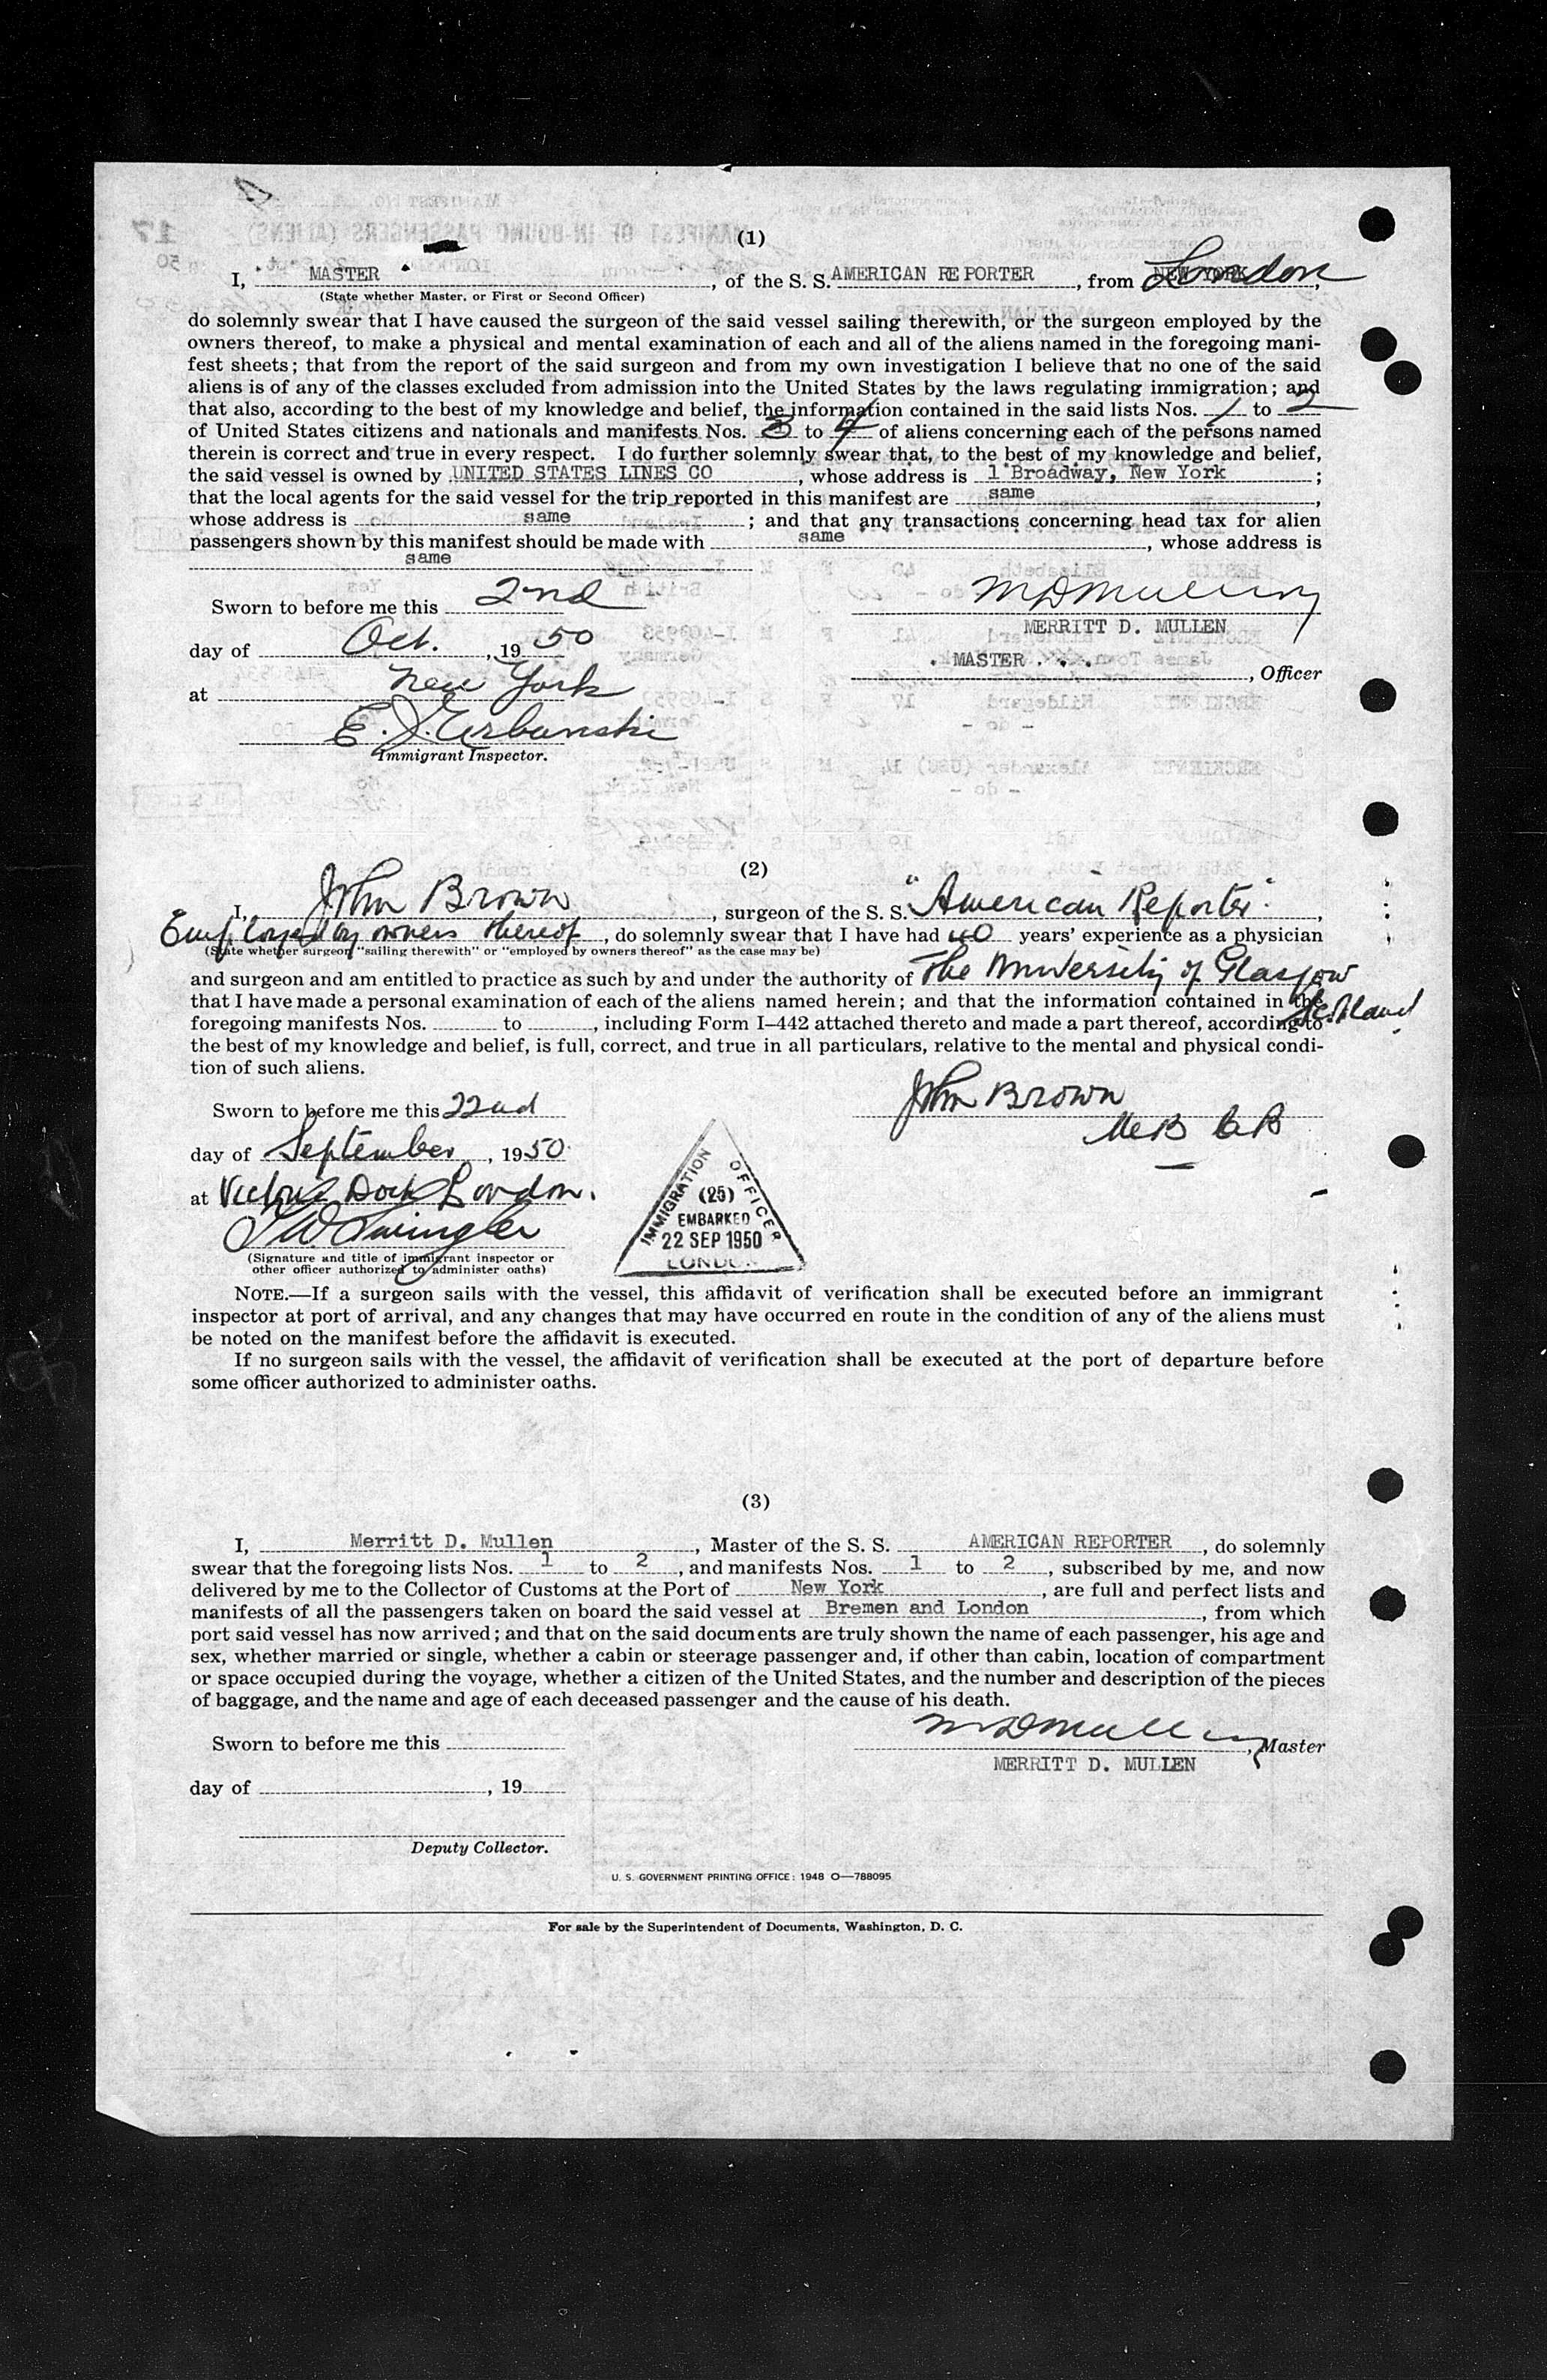 (1)
I, MASTER, of the S. S. AMERICAN REPORTER, from NEW YORK London,
(State whether Master, or First or Second Officer)
do solemnly swear that I have caused the surgeon of the said vessel sailing therewith, or the surgeon employed by the
owners thereof, to make a physical and mental examination of each and all of the aliens named in the foregoing mani-
fest sheets; that from the report of the said surgeon and from my own investigation I believe that no one of the said
aliens is of any of the classes excluded from admission into the United States by the laws regulating immigration; and
that also, according to the best of my knowledge and belief, the information contained in the said lists Nos. 1 to 2
of United States citizens and nationals and manifests Nos. 3 to 4 of aliens concerning each of the persons named
therein is correct and true in every respect. I do further solemnly swear that, to the best of my knowledge and belief,
the said vessel is owned by UNITED STATES LINES CO, whose address is 1 Broadway, New York;
that the local agents for the said vessel for the trip reported in this manifest are same,
whose address is same; and that any transactions concerning head tax for alien
passengers shown by this manifest should be made with same, whose address is
same
Sworn to before me this 2nd
MDMullen
MERRITT D. MULLEN
day of Oct., 1950
MASTER . . ., Officer
at New York
E. J. Urbanski
Immigrant Inspector.
(2)
I, John Brown, surgeon of the S. S. "American Reporter",
Employed by owners thereof, do solemnly swear that I have had 40 years' experience as a physician
(State whether surgeon "sailing therewith" or "employed by owners thereof" as the case may be)
and surgeon and am entitled to practice as such by and under the authority of The University of Glasgow
Scotland
that I have made a personal examination of each of the aliens named herein; and that the information contained in the
foregoing manifests Nos. to , including Form I-442 attached thereto and made a part thereof, according to
the best of my knowledge and belief, is full, correct, and true in all particulars, relative to the mental and physical condi-
tion of such aliens.
Sworn to before me this 22nd
John Brown
MB ChB
day of September, 1950
at Victoria Dock London.
(Signature and title of immigrant inspector or
other officer authorized to administer oaths)
IMMIGRATION OFFICER
(25)
EMBARKED
22 SEP 1950
LONDON
NOTE.—If a surgeon sails with the vessel, this affidavit of verification shall be executed before an immigrant
inspector at port of arrival, and any changes that may have occurred en route in the condition of any of the aliens must
be noted on the manifest before the affidavit is executed.
If no surgeon sails with the vessel, the affidavit of verification shall be executed at the port of departure before
some officer authorized to administer oaths.
(3)
I, Merritt D. Mullen, Master of the S. S. AMERICAN REPORTER, do solemnly
swear that the foregoing lists Nos. 1 to 2, and manifests Nos. 1 to 2, subscribed by me, and now
delivered by me to the Collector of Customs at the Port of New York, are full and perfect lists and
manifests of all the passengers taken on board the said vessel at Bremen and London, from which
port said vessel has now arrived; and that on the said documents are truly shown the name of each passenger, his age and
sex, whether married or single, whether a cabin or steerage passenger and, if other than cabin, location of compartment
or space occupied during the voyage, whether a citizen of the United States, and the number and description of the pieces
of baggage, and the name and age of each deceased passenger and the cause of his death.
Sworn to before me this
MDMullen, Master
MERRITT D. MULLEN
day of , 19
Deputy Collector.
U. S. GOVERNMENT PRINTING OFFICE: 1948 O—788095
For sale by the Superintendent of Documents, Washington, D. C.